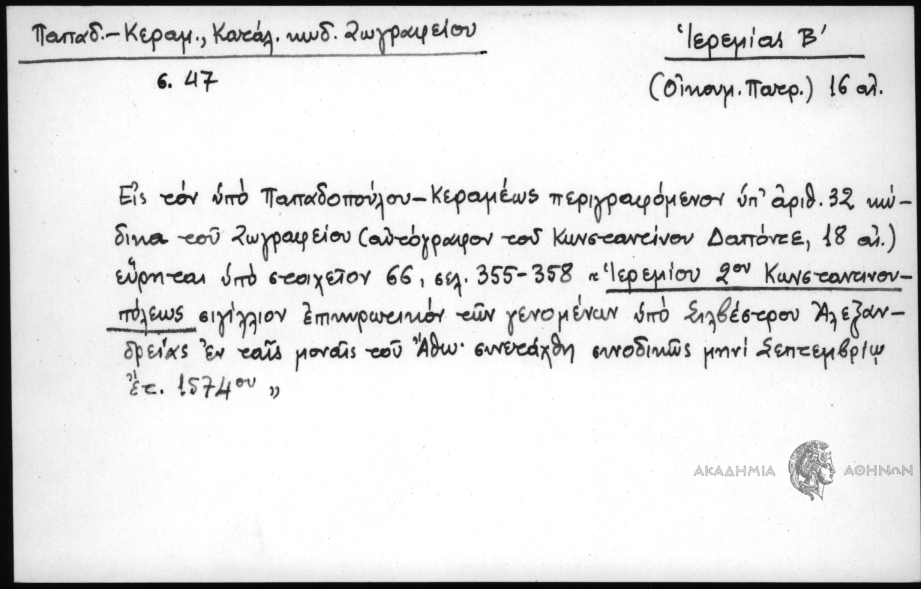 Παπαδ.-Κεραμ., Κατάλ. κωδ. Ζωγραφείου
σ. 47
Ἱερεμίας Β'
(Οἰκουμ. Πατρ.) 16 αἰ.
Εἰς τόν ὑπό Παπαδοπούλου-Κεραμέως περιγραφόμενον ὑπ' ἀριθ. 32 κώ-
δικα τοῦ Ζωγραφείου (αὐτόγραφον τοῦ Κωνσταντίνου Δαπόντε, 18 αἰ.)
εὕρηται ὑπό στοιχεῖον 66, σελ. 355-358 " Ἱερεμίου 2ου Κωνσταντινου-
πόλεως σιγίλλιον ἐπικυρωτικόν τῶν γενομένων ὑπό Σιλβέστρου Ἀλεξαν-
δρείας ἐν ταῖς μοναῖς τοῦ Ἄθω· συνετάχθη συνοδικῶς μηνί Σεπτεμβρίῳ
ἔτ. 1574ου „
ΑΚΑΔΗΜΙΑ ΑΘΗΝΩΝ